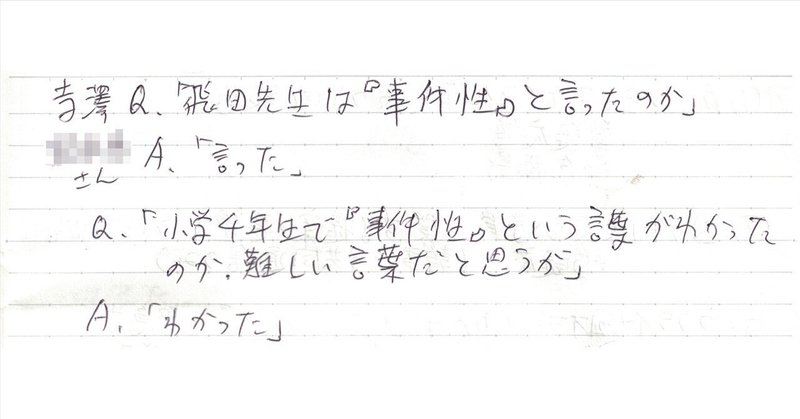 寺澤 Q.「飛田先生は『事件性』と言ったのか」
A.「言った」
さん
Q.「小学4年生で『事件性』という言葉がわかった
のか.難しい言葉だと思うが」
A.「わかった」